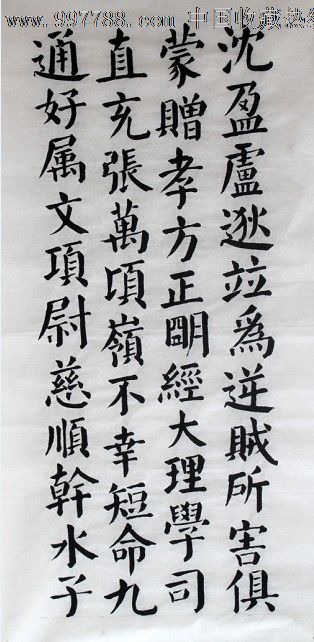 www.997788.com 中国收藏热线
沈盈盧逖竝爲逆賊所害俱
蒙贈孝方正明經大理學司
直充張萬頃嶺不幸短命九
通好属文項尉慈順幹水子